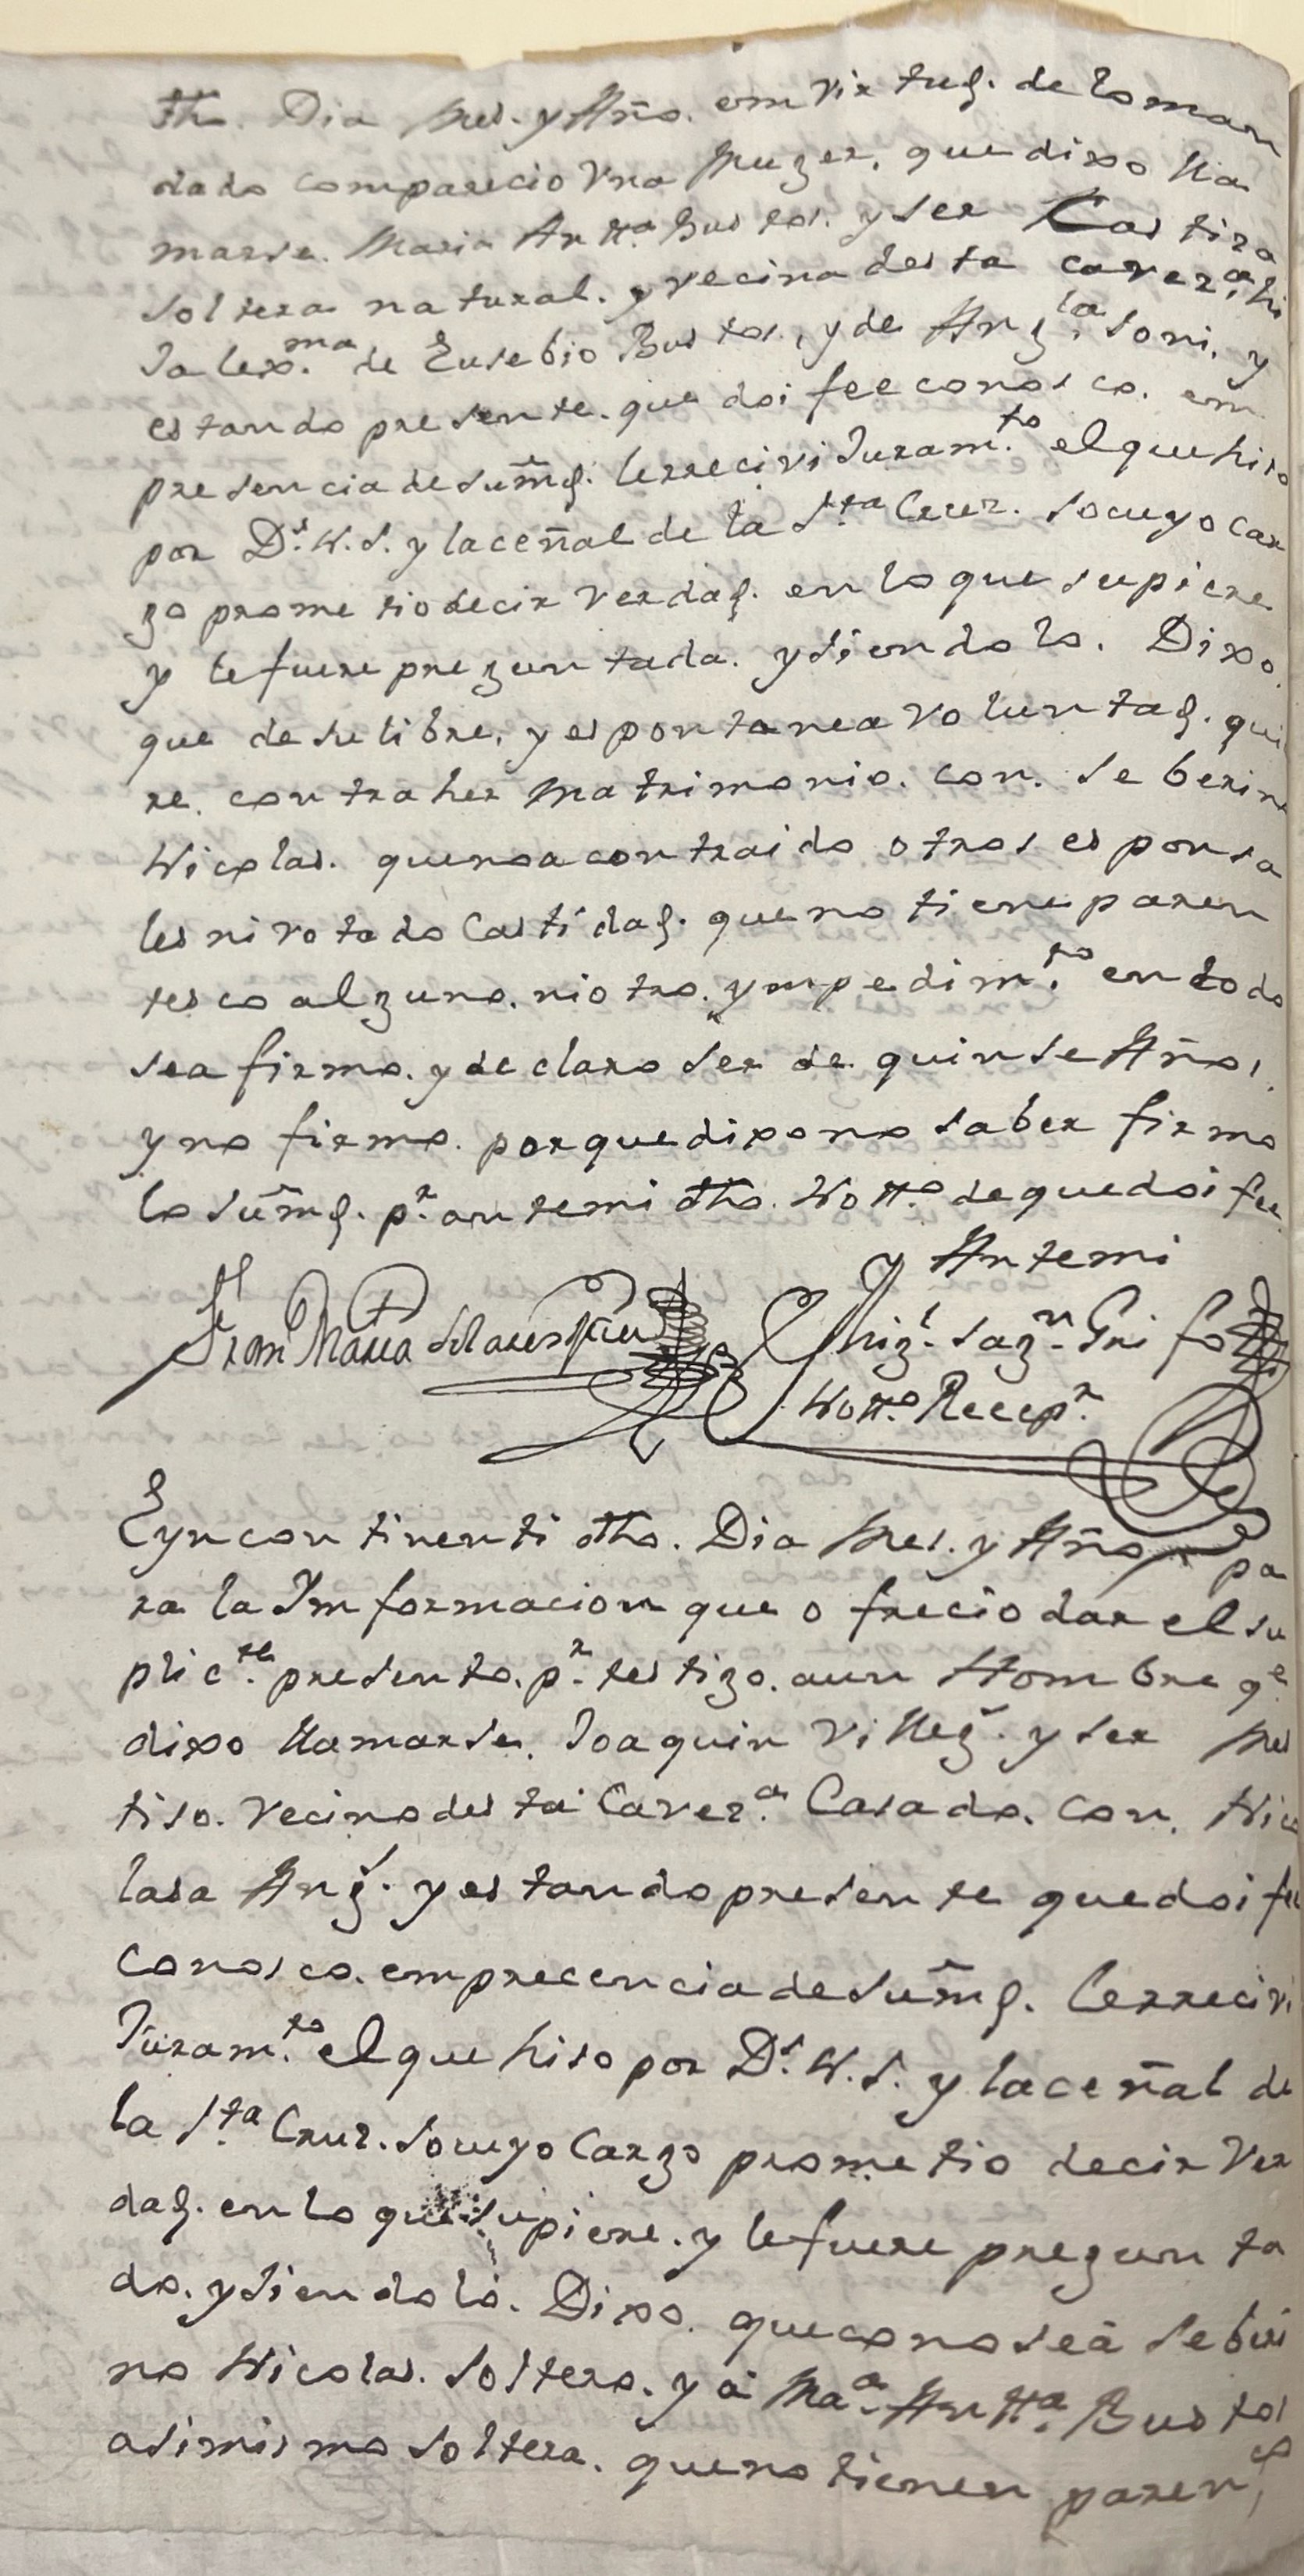 dho. Dia Mes. y Año. em virtud. de lo man
dado comparecio Vna Muger, que dixo lla
marse. Maria Antta. Bustos. y ser Castiza
soltera natural. y vecina desta caver.a hi
Ja lexma. de Eusebio Bustos, y de Angla. soni, y
estando presente. que doi fee conosco. em
presencia de su md. le rrecivi Juramto. el que hiso
por Ds. N. S. y la ceñal de la Sta Cruz. so cuyo car
go prometio decir verdad. en lo que supiere
y le fuere preguntada. y siendolo. Dixo.
que de su libre, y espontanea voluntad. qui
re. contraher Matrimonio. con. Seberino
Nicolas. que no a contraido otros esponsa
les ni votado Castidad. que no tiene paren
tesco alguno. ni otro. ympedimto. en todo
se afirmo. y declaro ser de quinse Años,
y no firmo. porque dixo no saber firmo
lo su md. pr. ante mi dho. Notto. de que doi fee
y Ante mi
Fran Maria
Notto. Recepr.
Eyncontinenti dho. Dia Mes. y Año pa
ra la Imformacion que o frecio dar el su
plicte. presento. pr. testigo. a un Hombre qe
dixo llamarse. Joaquin Villeg.s y ser Mes
tiso. Vecino desta Caver.a Casado. con. Nico
lasa Ang.s y estando presente que doi fee
conosco. em precencia de su md. le rrecivi
Juramto. el que hiso por Ds. N. S. y la ceñal de
la Sta Cruz. so cuyo Cargo prometio decir Ver
dad. en lo que supiere. y le fuere pregunta
do. y siendolo. Dixo. que conose a Seberi
no Nicolas. soltero. y a Maa. Antta. Bustos
asimismo soltera. que no tienen paren